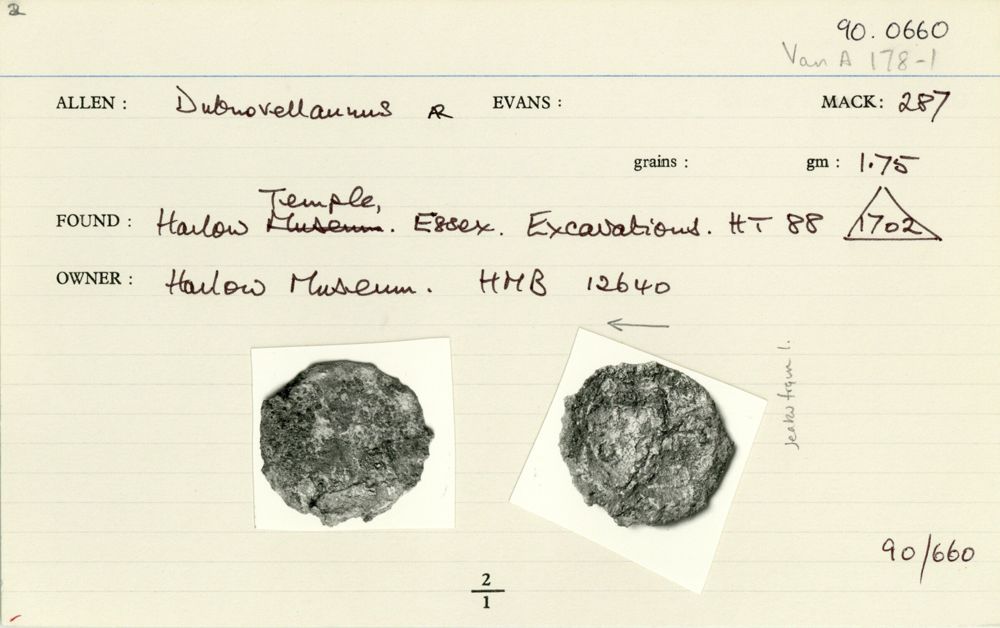 90.0660
Van A 178-1
ALLEN : Dubnovellaunus AR EVANS : MACK: 287
grains : gm : 1.75
Temple,
FOUND : Harlow Museum. Essex. Excavations. HT 88 1702
OWNER : Harlow Museum. HMB 12640
90/660
2
1